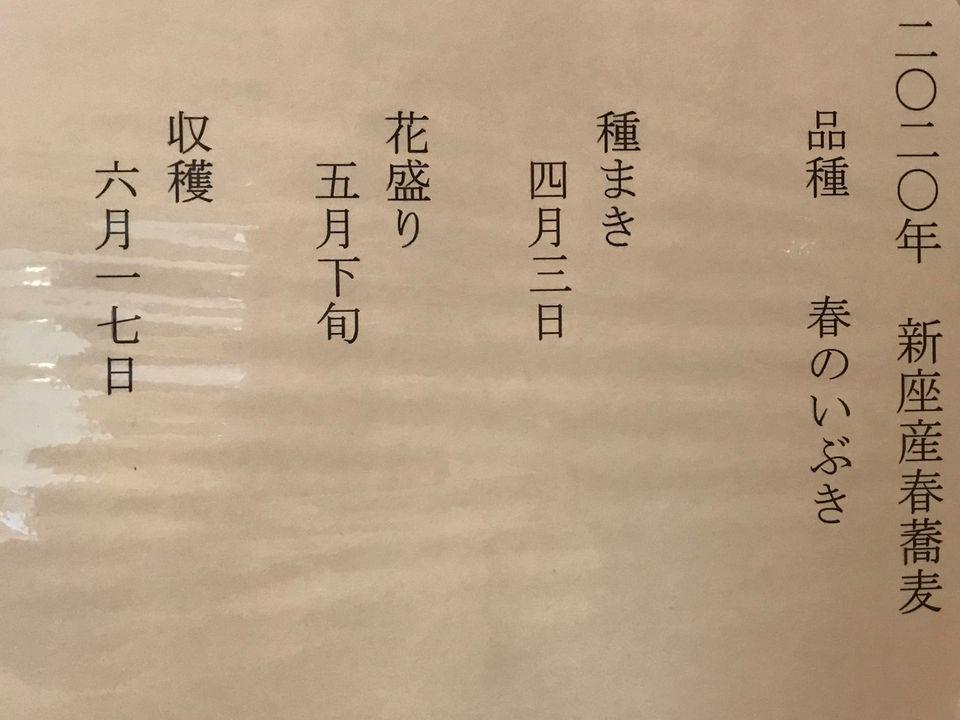 二〇二〇年　新座産春蕎麦
品種　春のいぶき
種まき
四月三日
花盛り
五月下旬
収穫
六月一七日